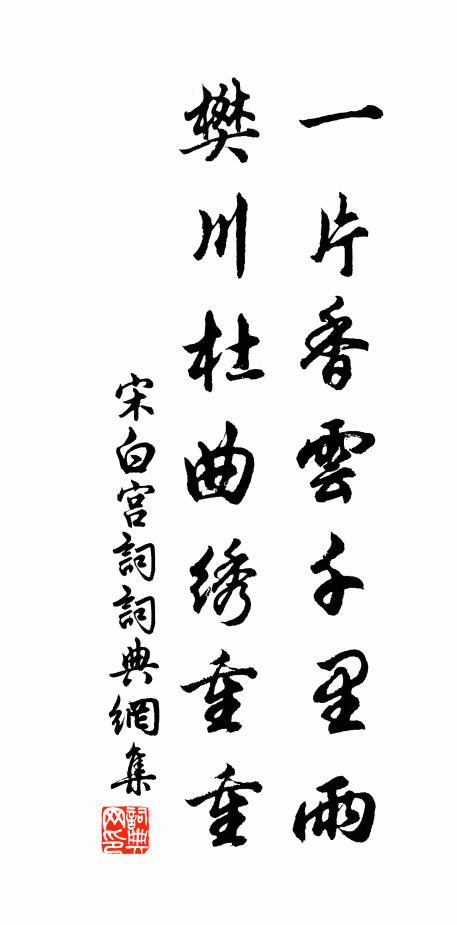 一片香雲千里雨
樊川杜曲绣重重
宋白宫詞詞典網集
詞典网印